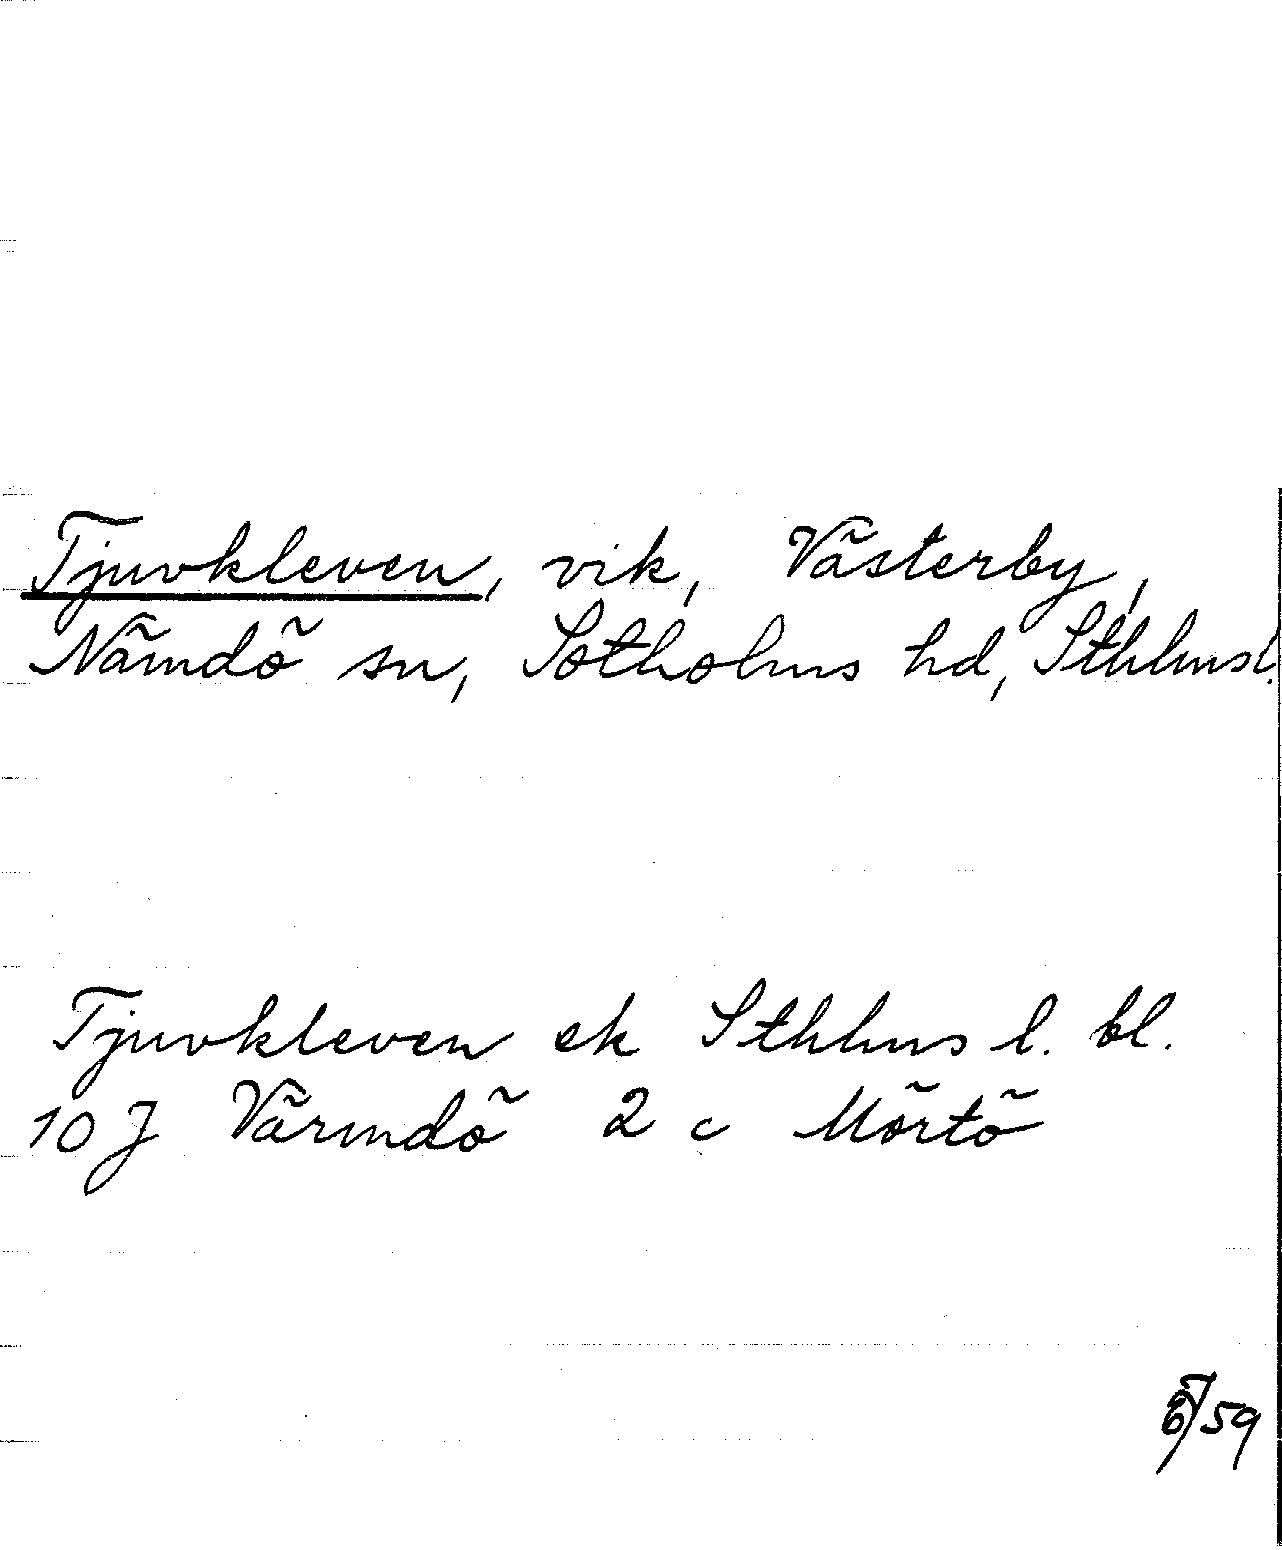 Tjuvkleven, vik, Västerby,
Nämdö sn, Sotholms hd, Sthlmsl.
Tjuvkleven ek Sthlms l. bl.
10 J Värmdö 2 c Mörtö
59